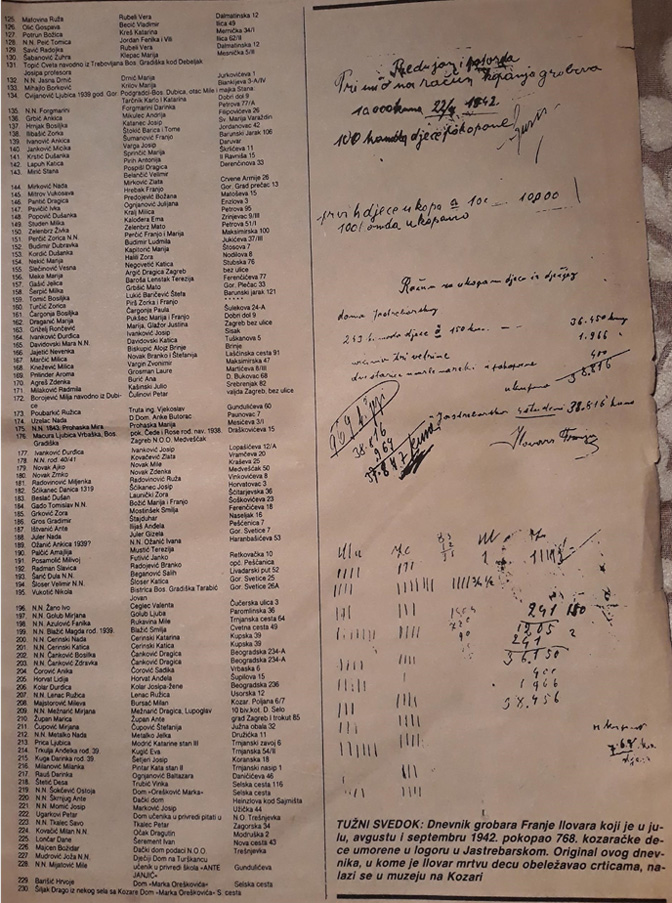 125. Matovina Ruže Rubeli Vera Dalmatinska 12
126. Olić Gospava Becić Vladimir Ilica 49
127. Potrun Božica Kreš Katarina Mernička 34/I
128. N.N. Peić Tomica Jordan Fenika i Vili Ilica 62/II
129. Savić Radojka Rubeli Vera Dalmatinska 12
130. Šabanović Zuhra Klepac Marija Mesnička 5/II
131. Topić Cveta navodno iz Trebevljana Bos. Gradiška kod Debeljak
Josipa profesora Jurkovićeva 1
132. N.N. Jasna Drnić Drnić Marija
133. Mihajlo Borković Krilov Marija
134. Cvijanović Ljubica 1939 god. Gor. Podgradci-Bos. Dubica, otac Mile i majka Stana:
Tarčnik Karlo i Katarina Dobri dol 9
135. N.N. Forgmarini Forgmarini Darinka Petrova 77/A
136. Grbić Ankica Mikulec Andrija Filipovićeva 26
137. Hrnjak Bosiljka Katanec Josip Sv. Marija Varaždin
138. Ribašić Zorka Štokić Barica i Tome Jordanovac 42
139. Ivanović Ankica Šumanović Franjo Barunski Jarak 106
140. Janković Micika Varga Josip Daruvar
141. Krstić Dušanka Sprinčić Marija Škrlčeva 11
142. Lapuh Katica Pirih Antonija II Ravniša 15
143. Mirić Stana Pospišl Dragica Derenčinova 33
Belančić Velimir
144. Mirković Nada Mirković Zlata Crvene Armije 26
145. Mitrov Vukosava Hrebek Franjo Gor. Grad prečac 13
146. Pantić Dragica Predojević Božana Matoševa 15
147. Pavičić Ivka Ognjanović Julijana Enzlova 3
148. Popović Dušanka Kralj Milica Petrova 95
149. Studen Milka Kalođera Ema Zrinjevac 9/III
150. Zelenbrz Živka Zelenbrz Mato Petrova 51/I
151. Perčić Zorica N.N. Perčić Franjo i Marija Maksimirska 100
152. Budimir Dubravka Budimir Ludmila Jukićeva 37/III
153. Kordić Dušanka Kapitorić Marija Štosova 7
154. Nekić Marija Halili Zora Nodilova 8
155. Slečinović Vesna Negovetić Katica Stubska 76
156. Maka Marija Argić Dragica Zagreb bez ulice
157. Gašić Jelica Baroša Lenstak Terezija Ferenčićeva 77
158. Šerpić Milka Grbšić Mato Gor. Prečac 33
159. Tomić Bosiljka Lukić Barčević Štefa Barunski jarak 121
160. Turčić Zorica Pirš Zorka i Franjo *****
161. Čargonja Bosiljka Čargonja Paula Šulekova 24-A
162. Draganić Marija Pukšec Marija i Franjo Dobri dol 9
163. Grizelj Rončević Marija, Glažor Justina Zagreb bez ulice
164. Ivanković Đurđica Ivanković Josip Sisak
165. Davidovski Mara N.N. Davidovski Katica Tuškanova 5
166. Jajetić Nevenka Biskupić Alojz Brinje Brinje
167. Marčić Milica Novak Branko i Štefanija Laščinska cesta 91
168. Knežević Milica Vargin Zvonimir Maksimirska 47
169. Prilinder Aroma Grosman Laure Martićeva 8/III
170. Agreš Zdenka Burić Ana D. Bukovac 68
171. Milaković Radmila Kašinski Julio Srebrenjak 82
172. Borojević Milja navodno iz Dubi- Čulinovi Petar valjda Zagreb, bez ulice
ce
173. Poubarkić Ružica Truta ing. Vjekoslav Gundulićeva 60
174. Uzelac Nada D Dom. Anke Butorac Paunovac 7
175. N.N. 1843. Prohaska Mira Prohaska Marija Mesićeva 3/I
176. Macura Ljubica Vrbaška, Bos. pok. Čede i Rose rođ. nav. 1938. Draškovićeva 15
Gradiška Zagreb N.O.O. Medveščak
177. Ivanković Đurđica Ivanković Josip Lopašićeva 12/A
178. N.N. rođ. 40/41 Kovačević Zlata Vramčeva 20
179. Novak Ajko Novak Mile Kraševa 25
180. Novak Zrnko Novak Zdenka Medveščak 50
181. Radovinović Miljenka Radovinović Ruža Vinkovićeva 8
182. Ščikanec Danica 1319 Ščikanec Josip Horvatovac 3
183. Beslać Dušan Launički Zora Ščitarjevska 36
184. Gado Tomislav N.N. Božić Marija i Franjo Šoškovićeva 23
185. Grković Zora Mostinšek Šmilja Ferenčićeva 18
186. Gros Gradimir Štajduhar Naseljak 16
187. Ištvanić Ante Ilijaš Anđela Peščenica 7
188. Juler Nada Juler Gizela Gor. Svetice 7
189. Ožanić Ankica 1939? N.N. Ožanić Ivana Haranbašićeva 53
190. Palčić Amajlija Mustić Terezija
191. Posarnolić Milivoj Futivić Janko Retkovačka 10
192. Radman Slavica Radojević Branko opć. Pešćanica
193. Šanti Dula N.N. Beganović Salih Livadarski put 52
194. Šloser Velimir N.N. Šloser Katica Gor. Svetice 25
195. Vukotić Nikola Bistrica Bos. Gradiška Tarabić Gor. Svetice 26A
Jovan
196. N.N. Žano Ivo Cegiec Valenta Čučerska ulica 3
197. N.N. Golub Mirjana Golub Ljuba Paromlinska 36
198. N.N. Azulović Fanika Rukavina Mile Trnjanska cesta 64
199. N.N. Blažić Magda rođ. 1939. Blažić Šmilja Cvetna cesta 49
200. N.N. Cerinski Nada Cerinski Katarina Kupska 39
201. N.N. Cerinski Katica Cerinski Katica Kupska 39
202. N.N. Čanković Bosilka Čanković Dragica Beogradska 234-A
203. N.N. Čanković Zdravka Čanković Dragica Beogradska 234-A
204. Ćorović Anika Ćorović Sadika Vrbaska 6
205. Horvat Lidija Horvat Anđela Šupilova 15
206. Kolar Đurđica Kolar Josipa-žene Beogradska 236
207. N.N. Lenac Ružica Lenac Ružica Usorska 12
208. Majstorović Mileva Bursać Milan Kozar. Poljana 6/7
209. N.N. Mežnarić Mirjana Mežnarić Dragica, Lupoglav 10 biv.kot. D. Selo
210. Župan Marica Župan Ante grad Zagreb i trokut 85
211. Čupović Mirjana Čupović Štefanija Južna obala 32
212. N.N. Metalko Nada Metalko Jelka Družilka 11
213. Prica Ljubica Modrić Katarine stan III Trnjanski zavoj 6
214. Trkulja Anđelka rođ. 39. Kugić Eva Trnjanska 54/II
215. Kuga Darinka rođ. 39. Šetjeri Josip Koranska 18
216. Milanović Milanka Pintar Kata stan II Trnjanski nasip 1
217. Rauš Darinka Ognjanović Baltazara Daničićeva 46
218. Stetić Desa Trubić Vinka Selska cesta 116
219. N.N. Šokčević Ostoja Dom »Orešković Marka« Selska cesta
220. N.N. Škrnjug Ante Đački dom Heinzlova kod Sajmišta
221. N.N. Momić Josip Marković Josip Užička 44
222. Ugarković Petar Dom učenika u privredi pitati u N.O. Trešnjevka
223. N.N. Tkalec Savo Tkalec Petar Zagorska 9
224. Kovačić Milan N.N. Očak Dragutin Modruška 2
225. Lončar Dane Šerement Ivan Nova cesta 43
226. Majcen Boždar Đački dom podaci N.O.O. Trešnjevka
227. Mudrović Joža N.N. Dječiji Dom na Turškancu
228. N.N. Mijatović Mile učenik u privredi škola »ANTE Gundulićeva
JANJIĆ«
229. Barišić Hrvoje Dom »Marka Oreškovića« Selska cesta
230. Šiljak Drago iz nekog sela sa Kozare Dom »Marka Oreškovića« S. cesta
Predujam i potvrda
Primio na račun kopanja grobova
10000 kuna 22/9 1942.
100 komada djece pokopane
prvih djece ukopa a 100 10000
100 komada ukopano
Račun za ukapanje djece iz dječjeg
doma Jastrebarsko
243 komada djece a 150 kuna — — 36.450 kuna
1.966
400
ukupno 38.816
Jastrebarsko 38.816 kuna
Ilovar Franjo
38.816
969
37.847 kuna
241 150
1205
241
36.150
400
1966
38.456
768
djece
TUŽNI SVEDOK: Dnevnik grobara Franje Ilovara koji je u ju-
lu, avgustu i septembru 1942. pokopao 768. kozaračke de-
ce umorene u logoru u Jastrebarskom. Original ovog dnev-
nika, u kome je Ilovar mrtvu decu obeležavao crticama, na-
lazi se u muzeju na Kozari